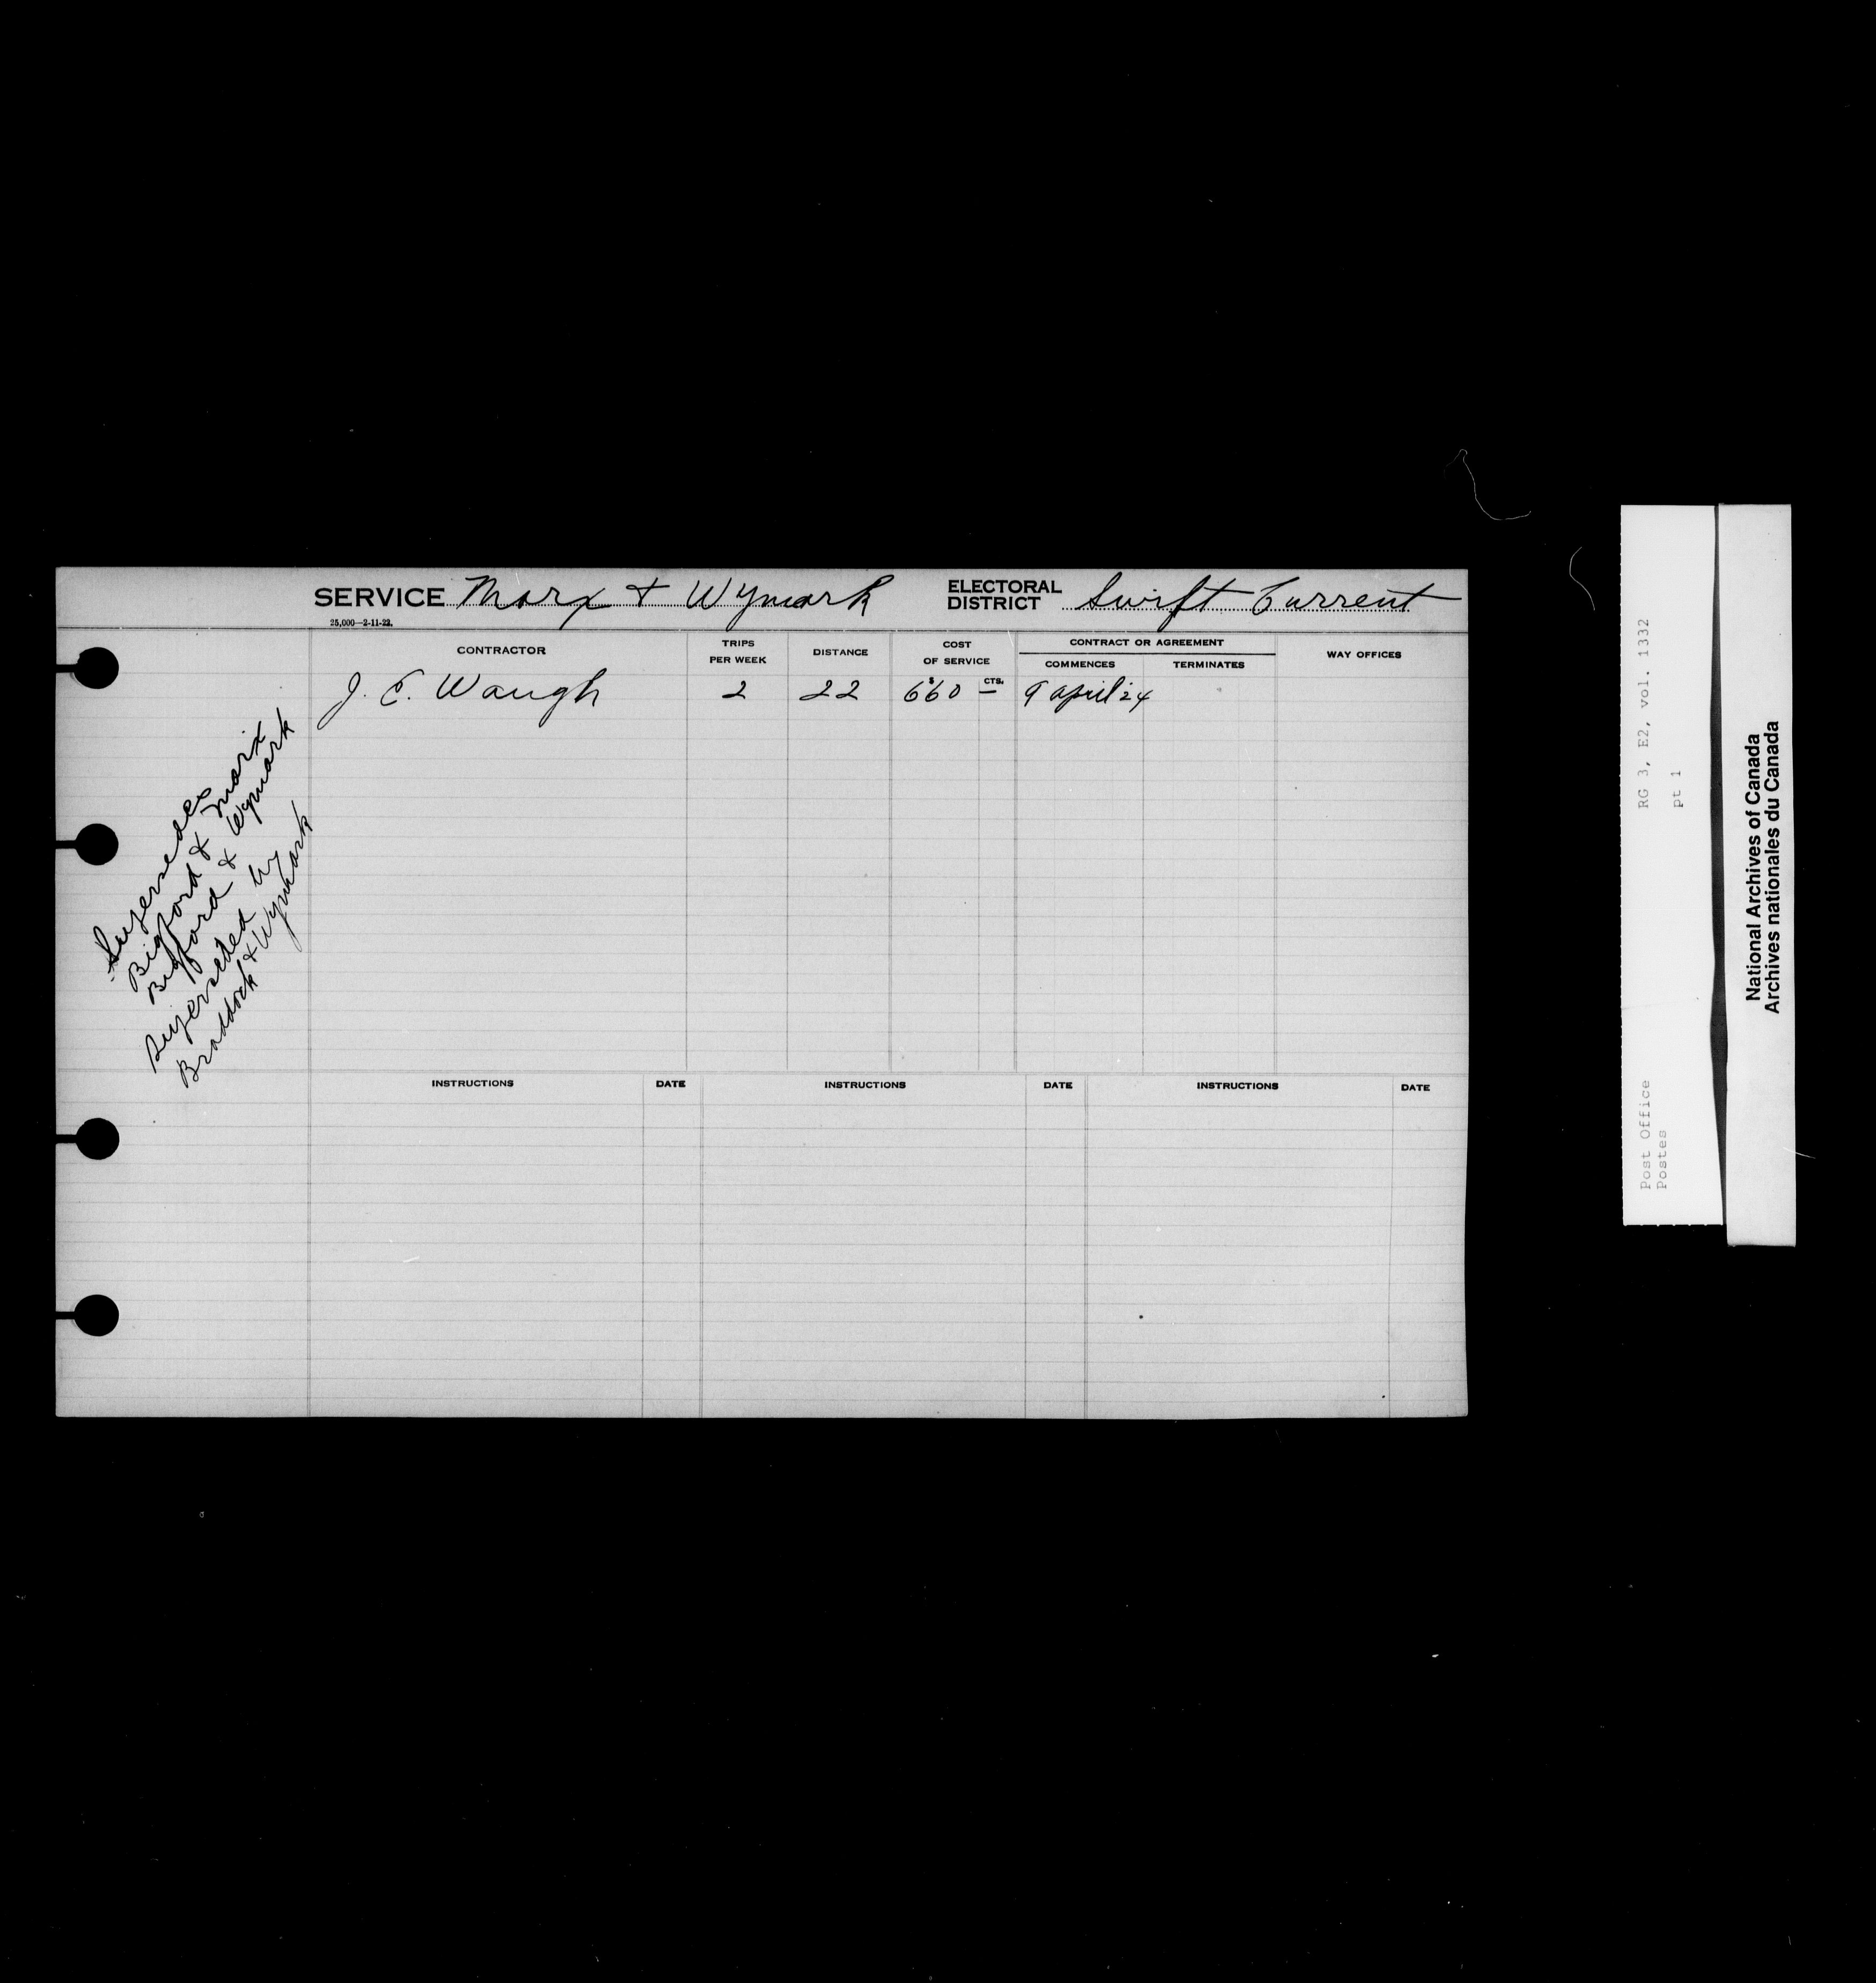 SERVICE Marx & Wymark ELECTORAL DISTRICT Swift Current
25,000—2-11-23.
CONTRACTOR TRIPS PER WEEK DISTANCE COST OF SERVICE CONTRACT OR AGREEMENT WAY OFFICES
COMMENCES TERMINATES
$ CTS.
J. E. Waugh 2 22 660 — 9 April '24
Supersedes
Bigford & Marx
Bigford & Wymark
Superseded by
Braddock & Wymark
INSTRUCTIONS DATE INSTRUCTIONS DATE INSTRUCTIONS DATE
Post Office RG 3, E2, vol. 1332
Postes pt 1
National Archives of Canada
Archives nationales du Canada